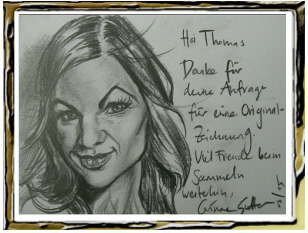 Hoi Thomas
Danke für
deine Anfrage
für eine Original-
Zeichnung.
Viel Freude beim
Sammeln
weiterhin,